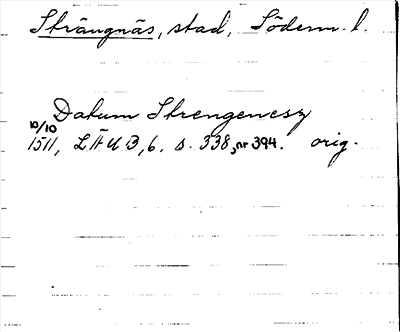 Strängnäs, stad, Söderm. l.
Datum Strengenesz
10/10
1511, LÄUB, 6. s. 338, nr 394. orig.